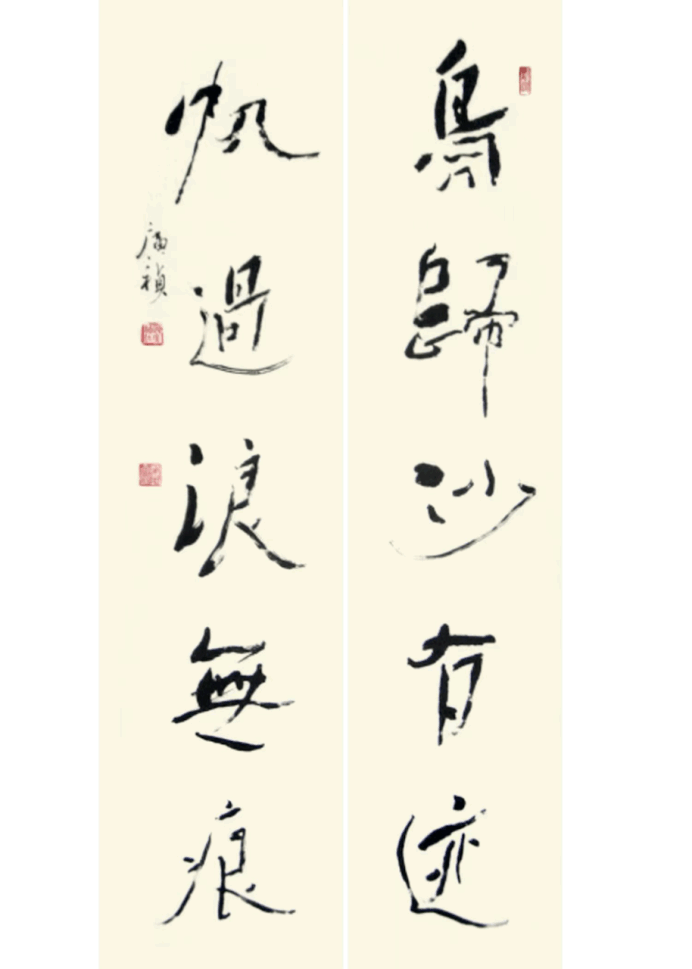 鳥歸沙有迹
帆過浪無痕
廣禎